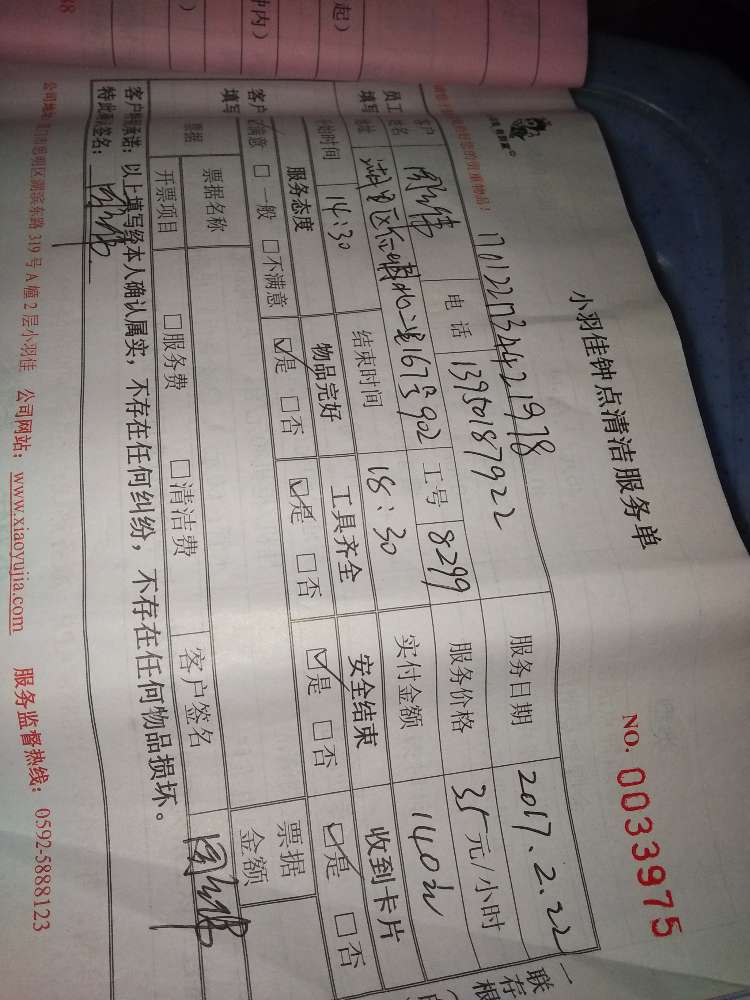 起)
钟内)
小羽佳钟点清洁服务单
NO. 0033975
17012213442 1978
客户
电话 13950187922
服务日期 2017.2.22
员工
签名
工号 8299
服务价格 35元/小时
填写
地址 湖里区 167号902
实付金额 140元
开始时间 14:30
结束时间 18:30
客户
填写
服务态度
物品完好
工具齐全
安全结束
收到卡片
☑满意 □一般 □不满意
☑是 □否
☑是 □否
☑是 □否
☑是 □否
票据
票据名称
票据
金额
开票项目
□服务费 □清洁费
客户签名
承诺:以上填写经本人确认属实,不存在任何纠纷,不存在任何物品损坏。
特此 签名:
公司地址: 门市思明区湖滨东路 319 号 A 幢 2 层小羽佳 公司网站:www.xiaoyujia.com 服务监督热线:0592-5888123
一
联
存
根